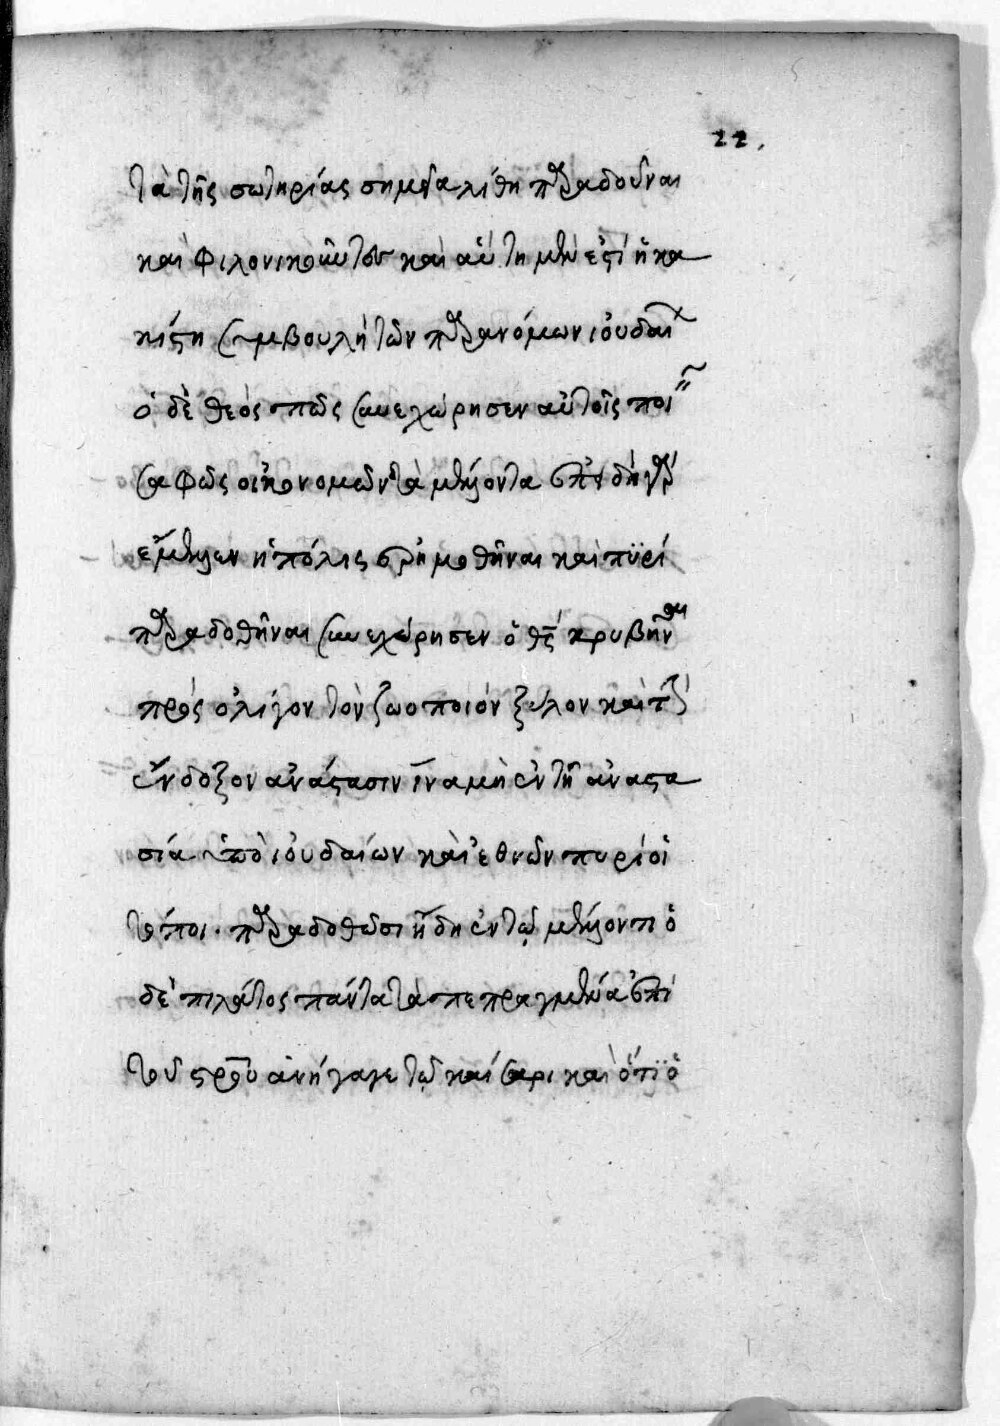 22.
τὰ τῆς σωτηρίας σημεῖα λίθη παραδοῦναι
καὶ φιλονικοῦντον καὶ αὕτη μὲν ἐστί ἡ κα
κίστη συμβουλὴ τῶν παρανόμων ἰουδαί
ὁ δὲ θεὸς πῶς συνεχώρησεν αὐτοῖς ποι
σαφῶς οἰκονομῶν τὰ μέλλοντα ἐπειδὴ γὰρ
ἔμελλεν ἡ πόλις ἐρημωθῆναι καὶ πϋρί
παραδοθῆναι συνεχώρησεν ὁ θς κρυβῆναι
πρὸς ὀλίγον τὸν ζωοποιόν ξύλον καὶ τὴν
ἔνδοξον ἀνάστασιν ἵνα μὴ ἐν τῆ ἀναστα
σία ὑπὸ ἰουδαίων καὶ ἐθνῶν πυρί οἱ
τόποι. παραδοθῶσι ἤδη ἐν τῷ μέλλοντι ὁ
δὲ πιλάτος πάντα τὰ πεπραγμένα ἐπὶ
τοῦ στροῦ ἀνήγαγε τῷ καίσαρι καὶ ὅτι ὁ